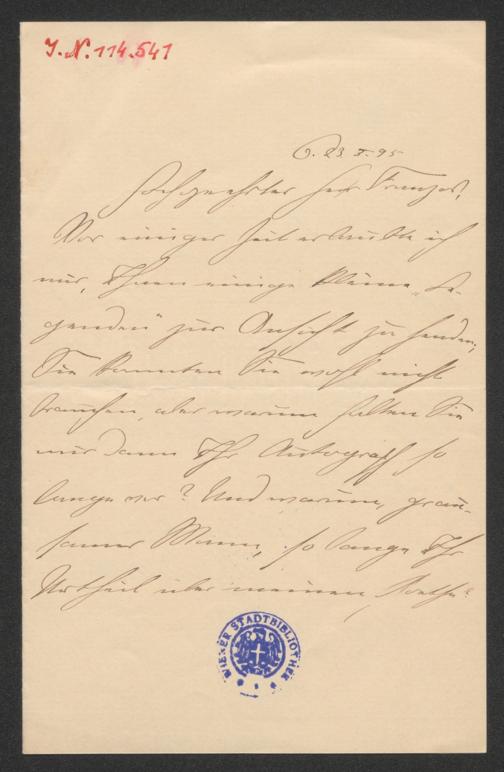 J.N. 114.541
23 X. 95
Hochgeehrter Herr Franzos!
Vor einiger Zeit erlaubte ich
mir, Ihnen einige kleine „Le-
genden" zur Ansicht zu senden;
Sie konnten Sie wohl nicht
brauchen, aber warum halten Sie
mir dann Ihr Autograph so
lange vor? Und warum, grau-
samer Mann, so lange Ihr
Urtheil über meinen
WIENER STADTBIBLIOTHEK